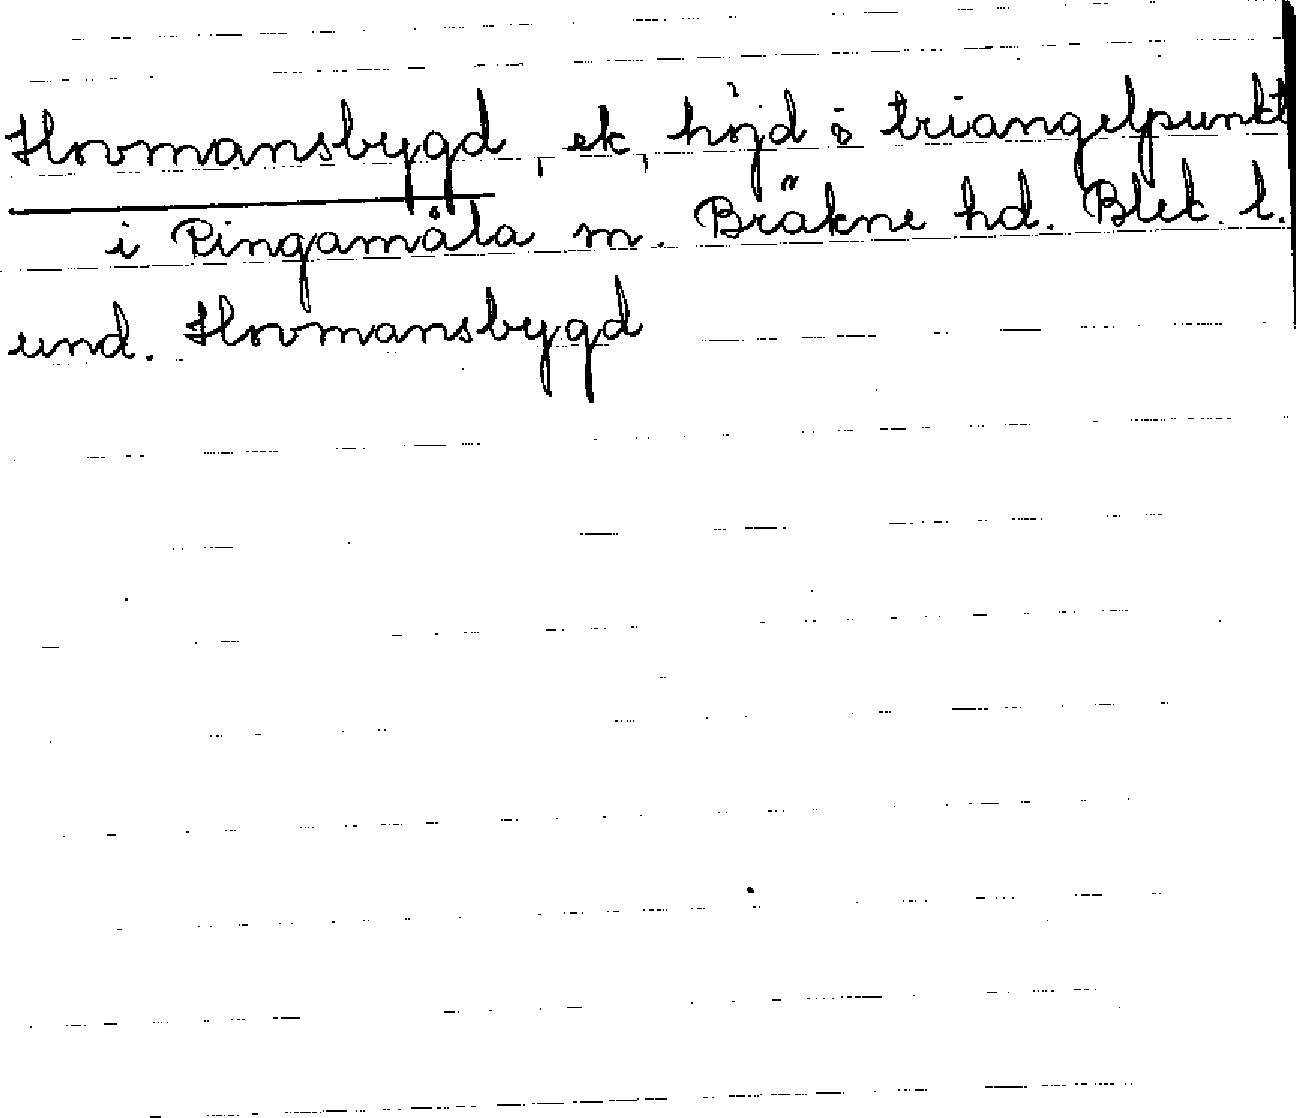 Hovmansbygd, ek, höjd o triangelpunkt
i Ringamåla sn. Bräkne hd. Blek. l.
und. Hovmansbygd